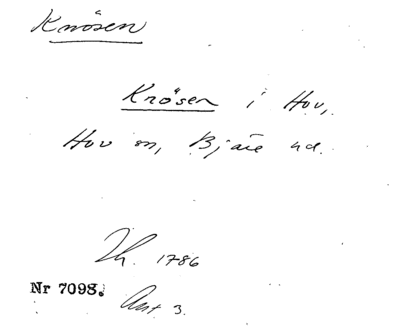 Knösen
Knösen i Hov,
Hov sn, Bjäre hd.
Th. 1786
Nr 7098. Ant 3.